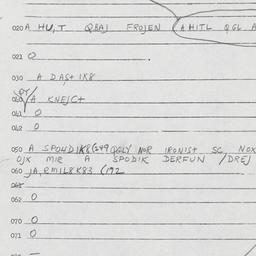 020 A HU,T QBAJ FROJEN (A HITL QGL A
021 O
030 A DAST 1K8
040 A KNEJCT
041 O
042 O
050 A SPODIK8 (249 QGLY NOR IRONIST SC, NOX
OJX MIR A SPODIK DERFUN /DREJ
060 JA, RMIL8K83 (192
061
062 O
070 O
071 O